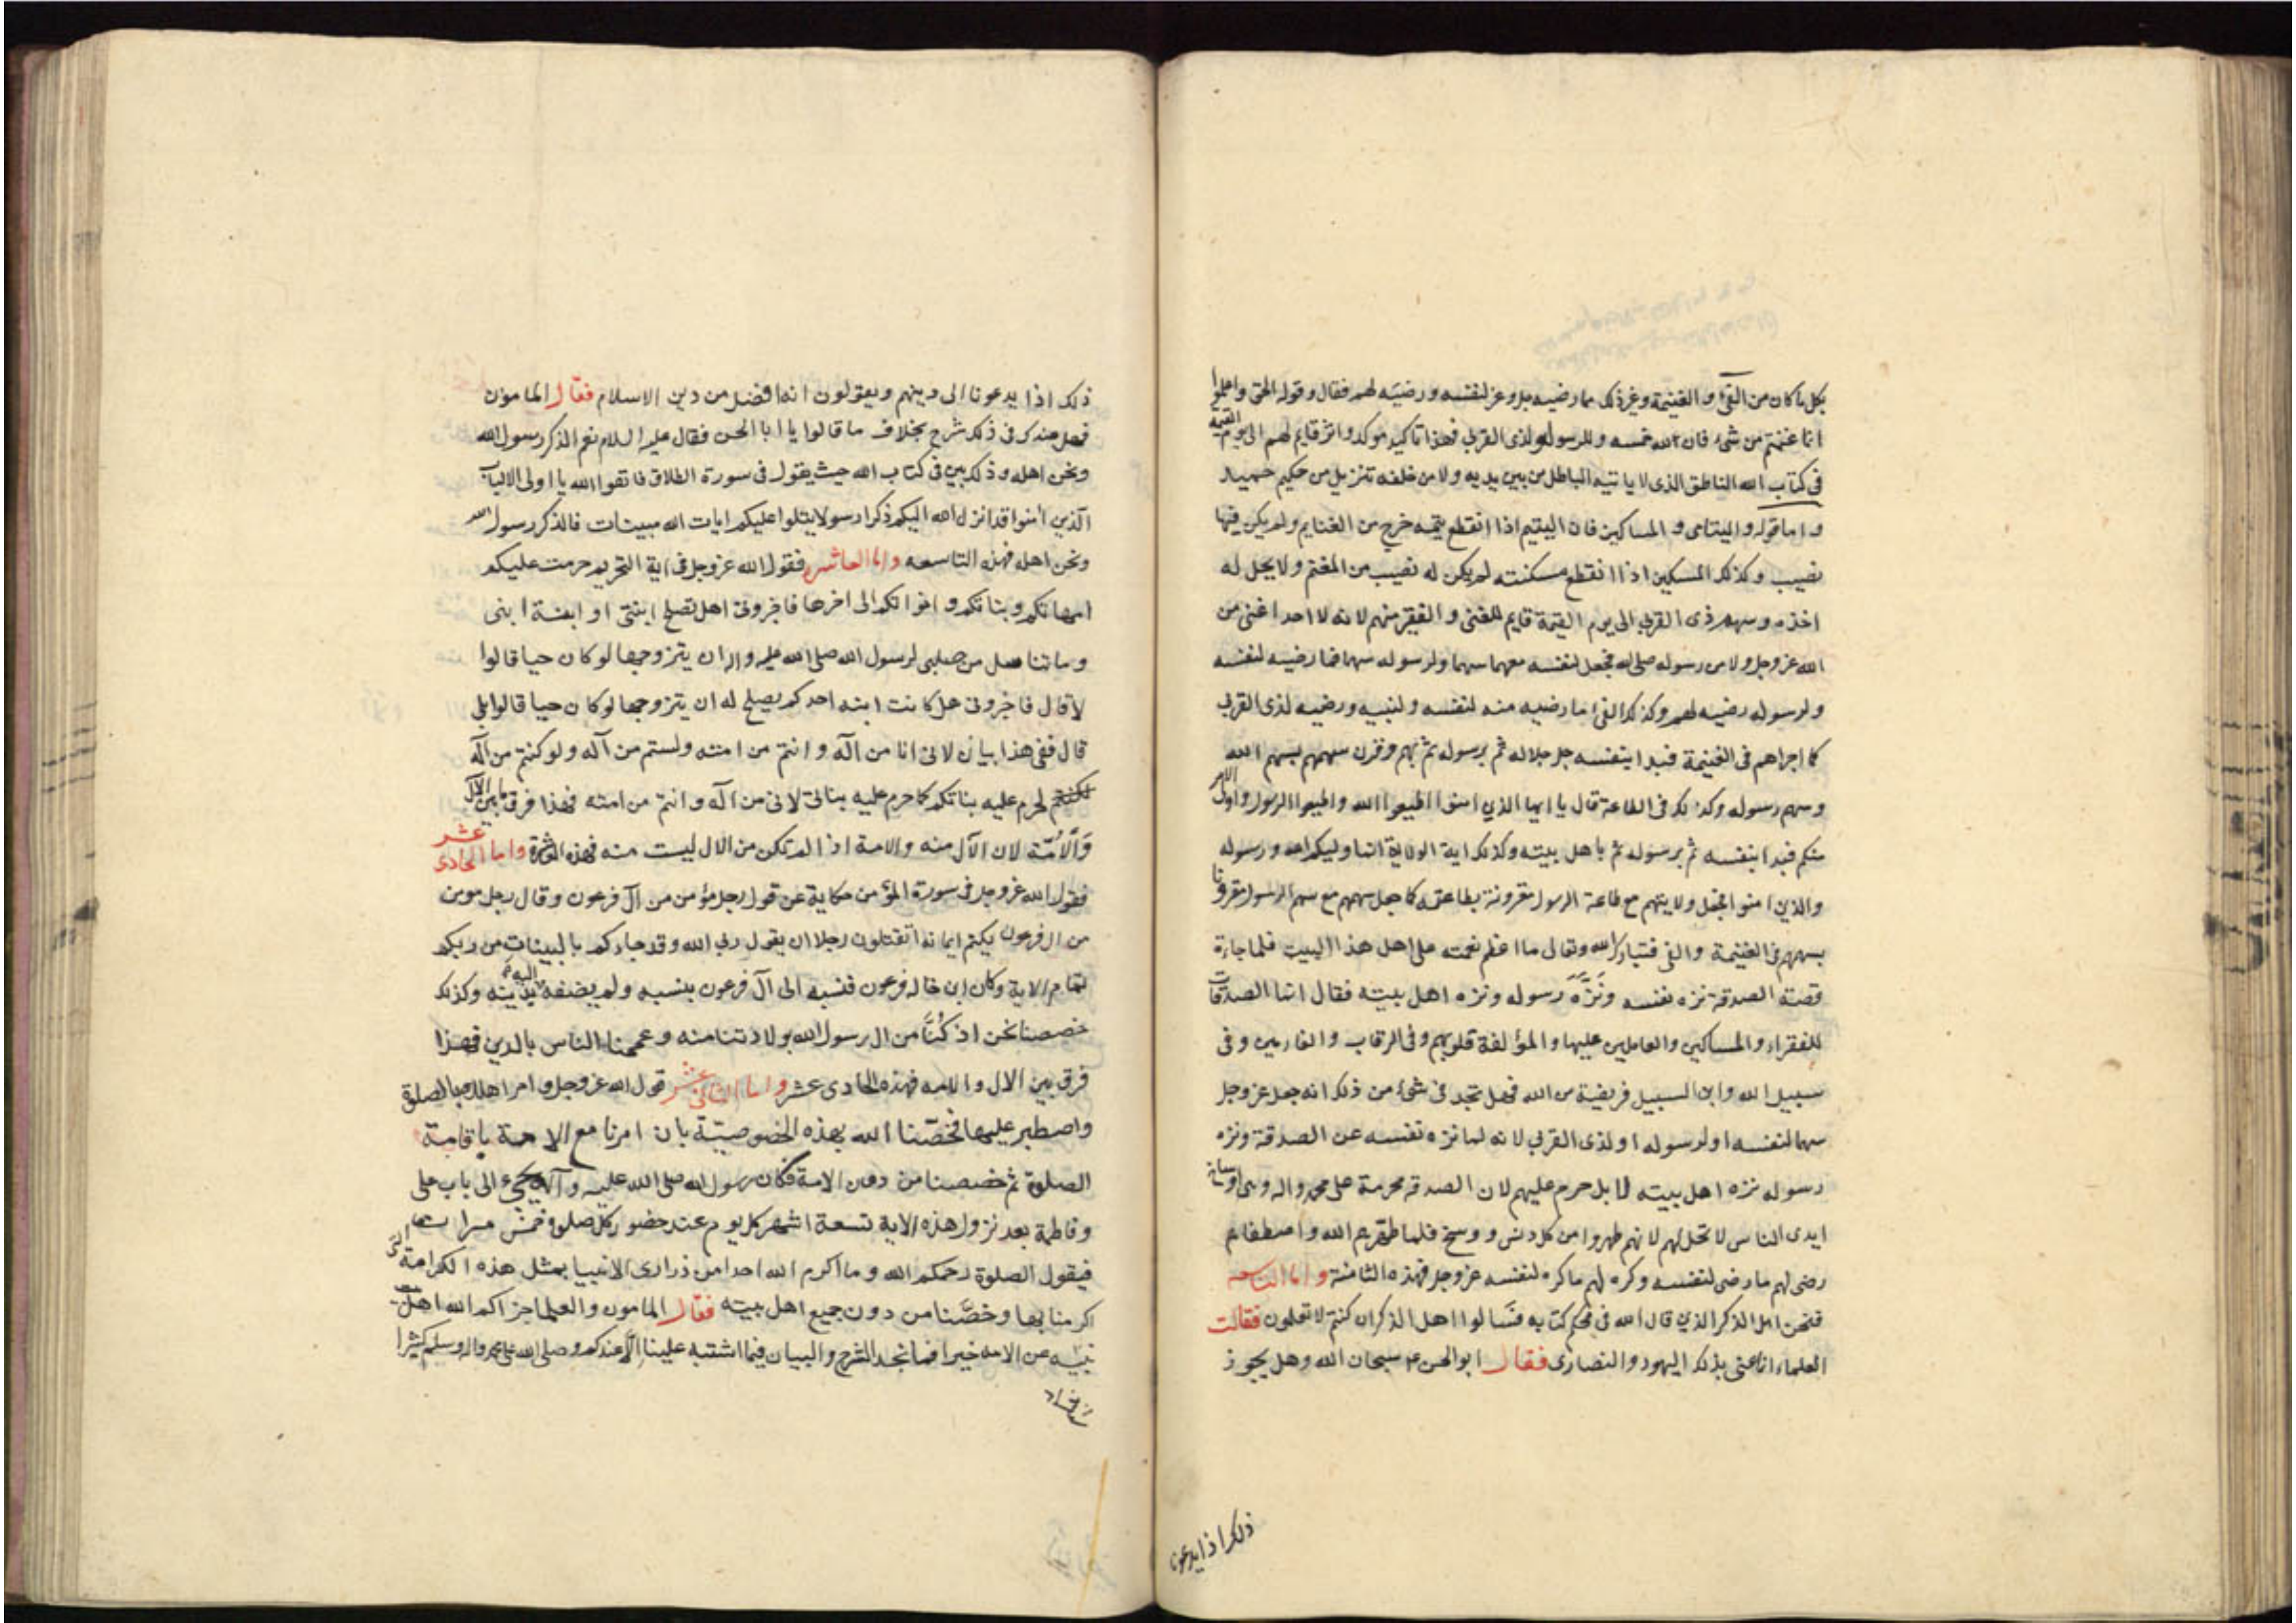 بكل ما كان من الفئ و الغنيمة وغير ذلك مما رضيه جل وعز لنفسه ورضيه لهم فقال وقوله الحق واعلموا
انما غنمتم من شئ فان لله خمسه وللرسول ولذي القربى فهذا تاكيد موكد واثر قايم لهم الى يوم القيمة
في كتاب الله الناطق الذى لا ياتيه الباطل من بين يديه ولا من خلفه تنزيل من حكيم حميد
واما قوله واليتامى و المساكين فان اليتيم اذا انقطع يتمه خرج من الغنايم ولم يكن فيها
نصيب وكذلك المسكين اذا انقطع مسكنته لم يكن له نصيب من المغنم ولا يحل له
اخذه وسهم ذى القربى الى يوم القيمة قايم للغنى و الفقير منهم لانه لا احد اغنى من
الله عز وجل ولا من رسوله صلى الله فجعل لنفسه معهما سهما ولرسوله سهما فما رضيه لنفسه
ولرسوله رضيه لهم وكذلك الفئ ما رضيه منه لنفسه ولنبيه ورضيه لذى القربى
كما اجراهم فى الغنيمة فبدا بنفسه جل جلاله ثم برسوله ثم بهم وقرن سهمهم بسهم الله
وسهم رسوله وكذلك فى الطاعة قال يا ايها الذين امنوا اطيعوا الله واطيعوا الرسول واولى الامر
منكم فبدا بنفسه ثم برسوله ثم باهل بيته وكذلك اية الولاية انما وليكم الله ورسوله
والذين امنوا فجعل ولايتهم مع طاعة الرسول مقرونة بطاعته كما جعل سهمهم مع سهم الرسول مقرونا
بسهمهم فى الغنيمة والفئ فتبارك الله وتعالى ما اعظم نعمته على اهل هذا البيت فلما جاءة
قصة الصدقة نزه نفسه ونَزَّهَ رسوله ونزه اهل بيته فقال انما الصدقات
للفقراء والمساكين والعاملين عليها والمؤلفة قلوبهم وفى الرقاب والغارمين وفى
سبيل الله وابن السبيل فريضة من الله فهل تجد فى شئ من ذلك انه جعل عز وجل
سهما لنفسه او لرسوله او لذى القربى لانه لما نزه نفسه عن الصدقة ونزه
رسوله نزه اهل بيته لا بل حرم عليهم لان الصدقه محرمة على محمد واله وهى اوساخ
ايدى الناس لا تحل لهم لانهم طهروا من كل دنس ووسخ فلما طهرهم الله واصطفاهم
رضى لهم ما رضى لنفسه وكره لهم ما كره لنفسه عز وجل فهذه الثامنة واما التاسعه
فنحن اهل الذكر الذين قال الله فى محكم كتابه فَسَالوا اهل الذكر ان كنتم لا تعلمون فقالت
العلماء انما عنى بذلك اليهود والنصارى فقال ابو الحسن ع سبحان الله وهل يجوز
ذلك اذا يدعونا
ذلك اذا يدعونا الى دينهم ويقولون انه افضل من دين الاسلام فقال المامون
فهل عندك فى ذلك شرح بخلاف ما قالوا يا ابا الحسن فقال عليه السلام نعم الذكر رسول الله
ونحن اهله وذلك بين فى كتاب الله حيث يقول فى سورة الطلاق فاتقوا الله يا اولى الالباب
الذين امنوا قد انزل الله اليكم ذكرا رسولا يتلوا عليكم ايات الله مبينات فالذكر رسول الله
ونحن اهله فهذه التاسعه واما العاشره فقول الله عز وجل فى اية التحريم حرمت عليكم
امهاتكم وبناتكم و اخواتكم الى اخرها فاخبرونى اهل تصلح ابنتى او ابنة ابنى
وما تناسل من صلبى لرسول الله صلى الله عليه واله ان يتزوجها لو كان حيا قالوا
لا قال فاخبرونى هل كانت ابنه احدكم يصلح له ان يتزوجها لو كان حيا قالوا بلى
قال ففى هذا بيان لانى انا من اله و انتم من امته ولستم من آله ولو كنتم من آله
لحرم عليه بناتكم كما حرم عليه بناتى لانى من اله و انتم من امته فهذا فرق ما بين الآل
وَالاُمّة لان الآل منه والامة اذا لم تكن من الال ليست منه فهذه العاشرة واما الحادى عشر
فقول الله عز وجل فى سورة المؤمن حكاية عن قول رجل مؤمن من آل فرعون وقال رجل مومن
من ال فرعون يكتم ايمانه اتقتلون رجلا ان يقول ربى الله وقد جاءكم بالبينات من ربكم
تمام الاية وكان ابن خال فرعون فنسبه الى آل فرعون بنسبه ولم يضفه اليه بدينه وكذلك
خصصنا نحن اذ كُنَّا من ال رسول الله بولادتنا منه وعممنا الناس بالدين فهذا
فرق بين الال والامه فهذه الحادى عشر واما الثانى عشر قول الله عز وجل وامر اهلك بالصلوة
واصطبر عليها فخصّنا الله بهذه الخصوصيّة بان امرنا مع الامة باقامة
الصلوة ثم خصصنا من دون الامة فكان رسول الله صلى الله عليه وآله يجئ الى باب على
وفاطمة بعد نزول هذه الاية تسعة اشهر كل يوم عند حضور كل صلوة خمس مرات
فيقول الصلوة رحمكم الله وما اكرم الله احدا من ذرارى الانبيا بمثل هذه الكرامة التى
اكرمنا بها وخصَّنا من دون جميع اهل بيته فقال المامون والعلما جزاكم الله اهل بيت
نبيه عن الامه خيرا فما نجد الشرح والبيان فيما اشتبه علينا الّا عندكم وصلى الله على محمد واله وسلم كثيرا